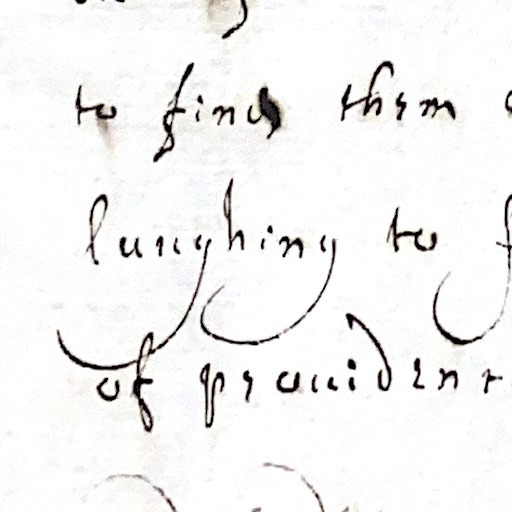 to find them
laughing to
of prouiden